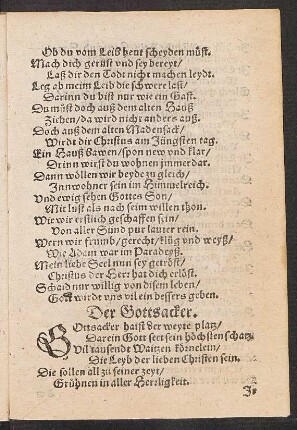 Ob du vom Leib heut scheyden müst.
Mach dich gerüst und sey bereyt/
Laß dir den Todt nicht machen leydt.
Leg ab meim Leib die schwere last/
Darinn du bist nur wie ein Gast.
Du müst doch auß dem alten Hauß
Ziehen/da wird nicht anders auß.
Doch auß dem alten Madensack/
Wirdt dir Christus am Jüngsten tag.
Ein Hauß bawen/spon new und klar/
Drinn wirst du wohnen jmmerdar.
Dann wöllen wir beyde zu gleich/
Innwohner sein im Himmelreich.
Und ewig sehen Gottes Son/
Mit lust als nach seim willen thon.
Wie wir erstlich geschaffen sein/
Von aller Sünd pur lauter rein.
Wern wir frumb/gerecht/klüg und weyß/
Wie Adam war im Paradeyß.
Mein liebe Seel nun sey getröst/
Christus der Herr hat dich erlöst.
Schaid nur willig von disem leben/
Gott wirdt uns vil ein bessers geben.
Der Gottsacker.
Gottsacker haist der weyte platz/
Darein Gott seet sein höchsten schatz.
Vil tausendt Waitzen körnelein/
Die Leyb der lieben Christen sein.
Die sollen all zu seiner zeyt/
Grühnen in aller Herrligkeit.